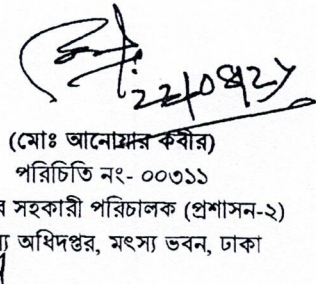 (মোঃ আনোয়ার কবীর)
পরিচিতি নং- ০০৩১১
সহকারী পরিচালক (প্রশাসন-২)
অধিদপ্তর, মৎস্য ভবন, ঢাকা